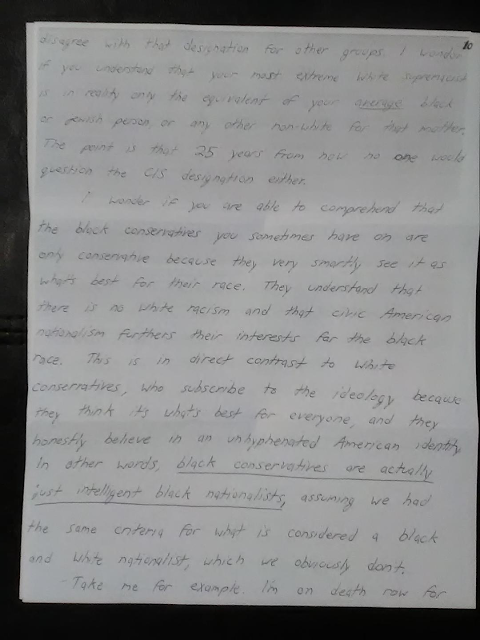 10
disagree with that designation for other groups. I wonder
if you understand that your most extreme white supremacist
is in reality only the equivalent of your average black
or jewish person or any other non-white for that matter.
The point is that 25 years from now no one would
question the CIS designation either.
I wonder if you are able to comprehend that
the black conservatives you sometimes have on are
only conservative because they very smartly see it as
what's best for their race. They understand that
there is no white racism and that civic American
nationalism furthers their interests for the black
race. This is in direct contrast to white
conservatives, who subscribe to the ideology because
they think it's what's best for everyone, and they
honestly believe in an unhyphenated American identity.
In other words, black conservatives are actually
just intelligent black nationalists, assuming we had
the same criteria for what is considered a black
and white nationalist, which we obviously don't.
Take me for example. I'm on death row for